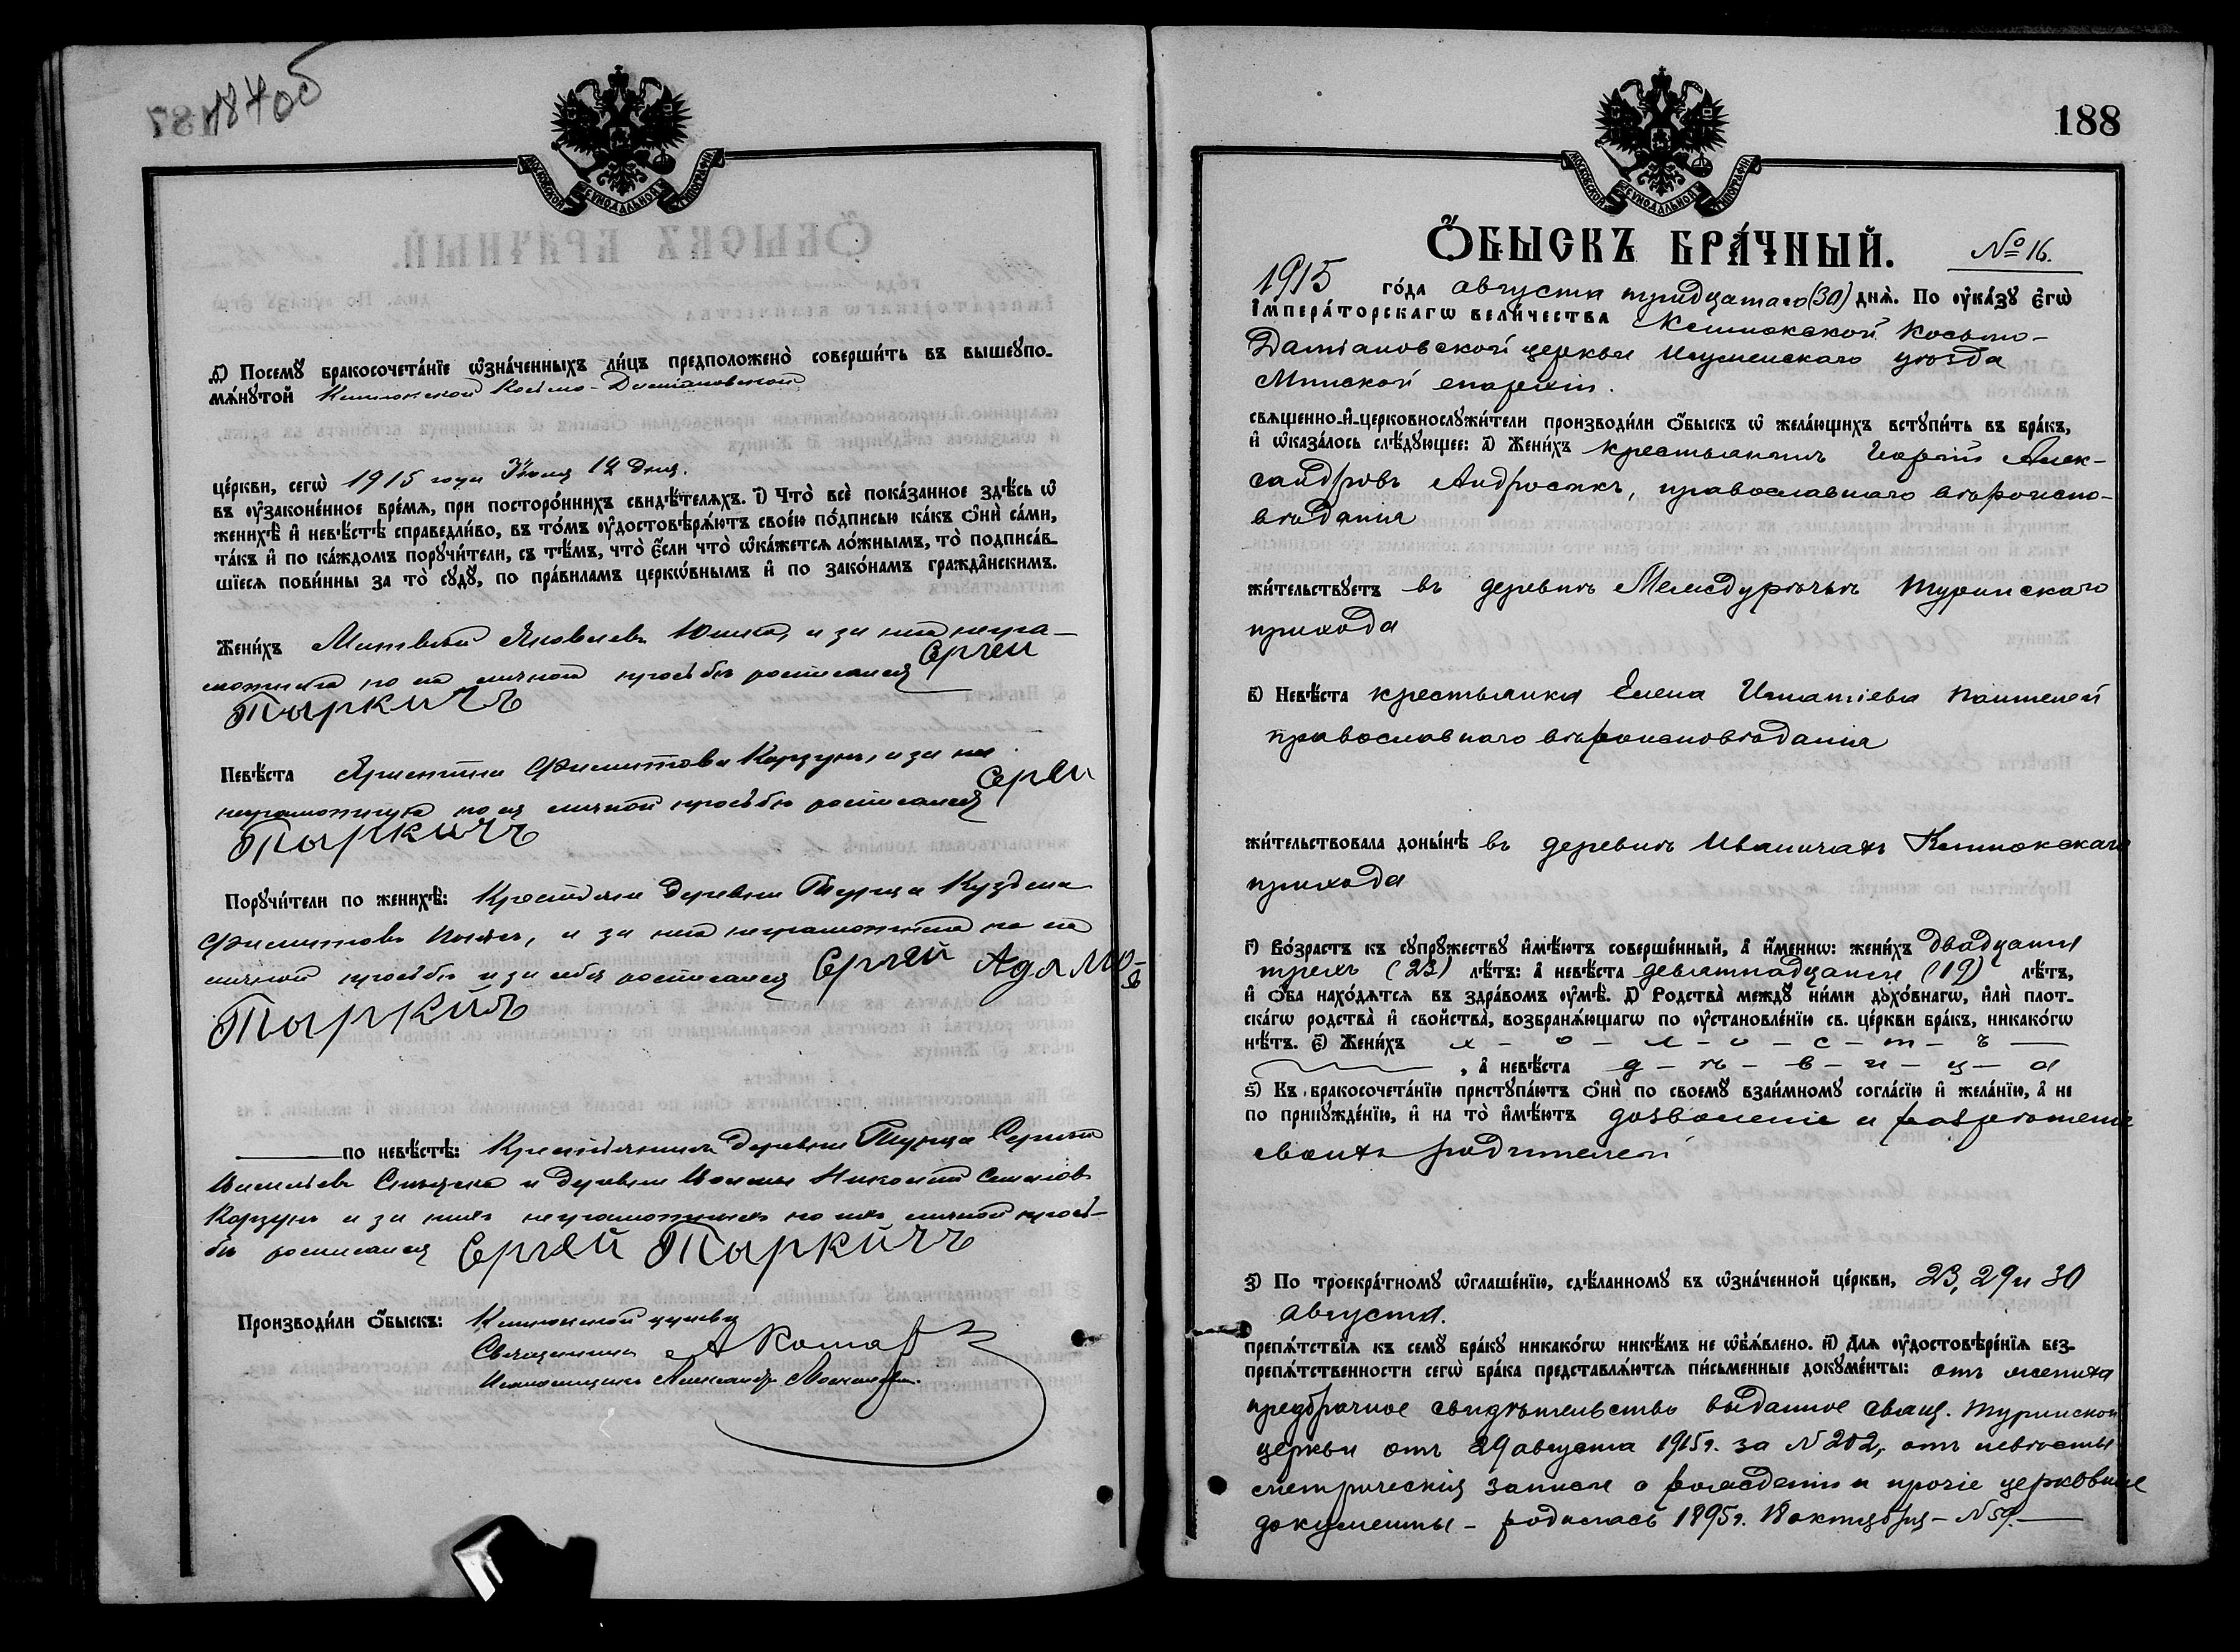 187
187 об
МОСКОВСКОЙ СѴНОДАЛЬНОЙ ТИПОГРАФІИ
д҃) Посемꙋ̀ бракосочета́нїе ѡ҆зна́ченныхъ ли́цъ предположено̀ соверши́ть въ вышеꙋпо-
мѧ́нꙋтой Клинокской Косьмо-Даміановской
це́ркви, сегѡ̀ 1915 года Іюня 12 дня.
въ ᲂу҆законе́нное вре́мѧ, при посторо́ннихъ свидѣ́телѧхъ. і҃) Что̀ всѐ пока́занное здѣ́сь ѡ҆
женихѣ̀ и҆ невѣ́стѣ справедли́во, въ то́мъ ᲂу҆достовѣрѧ́ютъ свое́ю по́дписью ка́къ ѻ҆нѝ са́ми,
та́къ и҆ по ка́ждомъ порꙋчи́тели, съ тѣ́мъ, что̀ є҆́сли что̀ ѡ҆ка́жетсѧ ло́жнымъ, то̀ подписа́в-
шїесѧ пови́нны за то̀ сꙋдꙋ̀, по пра́виламъ церкѡ́внымъ и҆ по зако́намъ гражда̑нскимъ.
Жени́хъ Матвѣй Яковлевъ Юшко, и за него негра-
мотнаго по его личной просьбѣ росписался Сергей
Таркичъ
Невѣ́ста Филиппова Корзунъ, и за нея
неграмотную по ея личной просьбѣ росписался Сергей
Таркичъ
Порꙋчи́тели по женихѣ̀: Крестьяне деревни Турца Кузьма
Филипповъ, и за него неграмотнаго по его
личной просьбѣ и за себя росписался Сергей Адамовъ
Таркичъ
по невѣ́стѣ: Крестьянинъ деревни Турца Сергѣй
Васильевъ и деревни Николай
Корзунъ и за нихъ неграмотныхъ по ихъ личной прось-
бѣ росписался Сергей Таркичъ
Производи́ли ѻ҆́быскъ: Клинокской церкви
Священникъ А Комар
Псаломщикъ Александръ
188
МОСКОВСКОЙ СѴНОДАЛЬНОЙ ТИПОГРАФІИ
Ѻ҆́БЫСКЪ БРА́ЧНЫЙ. № 16.
1915 го́да августа тридцатаго (30) днѧ̀. По ᲂу҆ка́зꙋ є҆гѡ̀
І҆мпера́торскагѡ вели́чества Клинокской Косьмо-
Даміановской церкви Игуменскаго уѣзда
Минской епархіи.
свѧще́нно-и҆-церковнослꙋжи́тели производи́ли ѻ҆́быскъ ѡ҆ жела́ющихъ встꙋпи́ть въ бра́къ,
и҆ ѡ҆каза́лось слѣ́дꙋющее: а҃) Жени́хъ крестьянинъ Георгій Алек-
сандровъ Андросикъ, православнаго вѣроиспо-
вѣданія
жи́тельствꙋетъ въ деревнѣ Междурѣчьѣ Туринскаго
прихода
в҃) Невѣ́ста крестьянка Елена Игнатіева Пантелей
православнаго вѣроисповѣданія
жи́тельствовала доны́нѣ въ деревнѣ Иваничахъ Клинокскаго
прихода
г҃) Во́зрастъ къ сꙋпрꙋ́жествꙋ и҆мѣ́ютъ соверше́нный, а҆ и҆́меннѡ: жени́хъ двадцати
трехъ (23) лѣ́тъ: а҆ невѣ́ста девятнадцати (19) лѣ́тъ,
и҆ ѻ҆́ба нахо́дѧтсѧ въ здра́вомъ ᲂу҆мѣ̀. д҃) Родства̀ междꙋ̀ ни́ми дꙋхо́внагѡ, и҆лѝ плот-
ска́гѡ родства̀ и҆ свойства̀, возбранѧ́ющагѡ по ᲂу҆становле́нїю св. це́ркви бра́къ, никако́гѡ
нѣ́тъ. є҃) Жени́хъ х - о - л - о - с - т - ъ
, а҆ невѣ́ста д - ѣ - в - и - ц - а
ѕ҃) Къ бракосочета́нїю пристꙋпа́ютъ ѻ҆нѝ по своемꙋ̀ взаи́мномꙋ согла́сїю и҆ жела́нїю, а҆ не
по принꙋжде́нїю, и҆ на то̀ и҆мѣ́ютъ дозволеніе и разрѣшеніе
своихъ родителей
з҃) По троекра́тномꙋ ѡ҆глаше́нїю, сдѣ́ланномꙋ въ ѡ҆зна́ченной це́ркви, 23, 29 и 30
августа.
препѧ́тствїѧ къ семꙋ̀ бра́кꙋ никако́гѡ никѣ́мъ не ѡ҆б̾ѧ́влено. и҃) Длѧ ᲂу҆достовѣре́нїѧ без-
препѧ́тственности сегѡ̀ бра́ка представлѧ́ютсѧ пи́сьменные докꙋме́нты: отъ жениха
предбрачное свидѣтельство выданное свящ. Туринской
церкви отъ 29 августа 1915 г. за № 202, отъ невѣсты
метрическія записи о рожденіи и прочіе церковные
документы - родилась 1895 г. 18 октября - № 59.